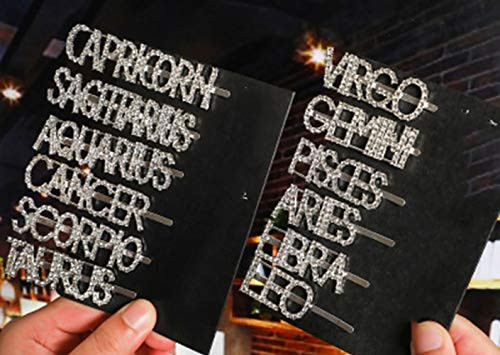 CAPRICORN
SAGITTARIUS
AQUARIUS
CANCER
SCORPIO
TAURUS
VIRGO
GEMINI
PISCES
ARIES
LIBRA
LEO